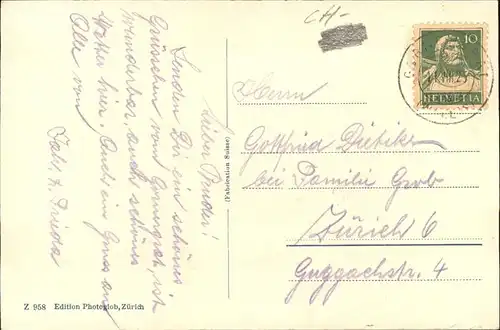 CH-
10
HELVETIA
Lieber Bruder!
Senden Dir ein schönes
Grüsschen vom Gornergrat, ist
wunderbar, auch schönes
Wetter hier. Auch ein Gruss an
Alle von
Jak. & Frieda
(Fabrication Suisse)
Herrn
Gottfried Dietiker
bei Familie Grob
Zürich 6
Guggachstr. 4
Z 958 Edition Photoglob, Zürich